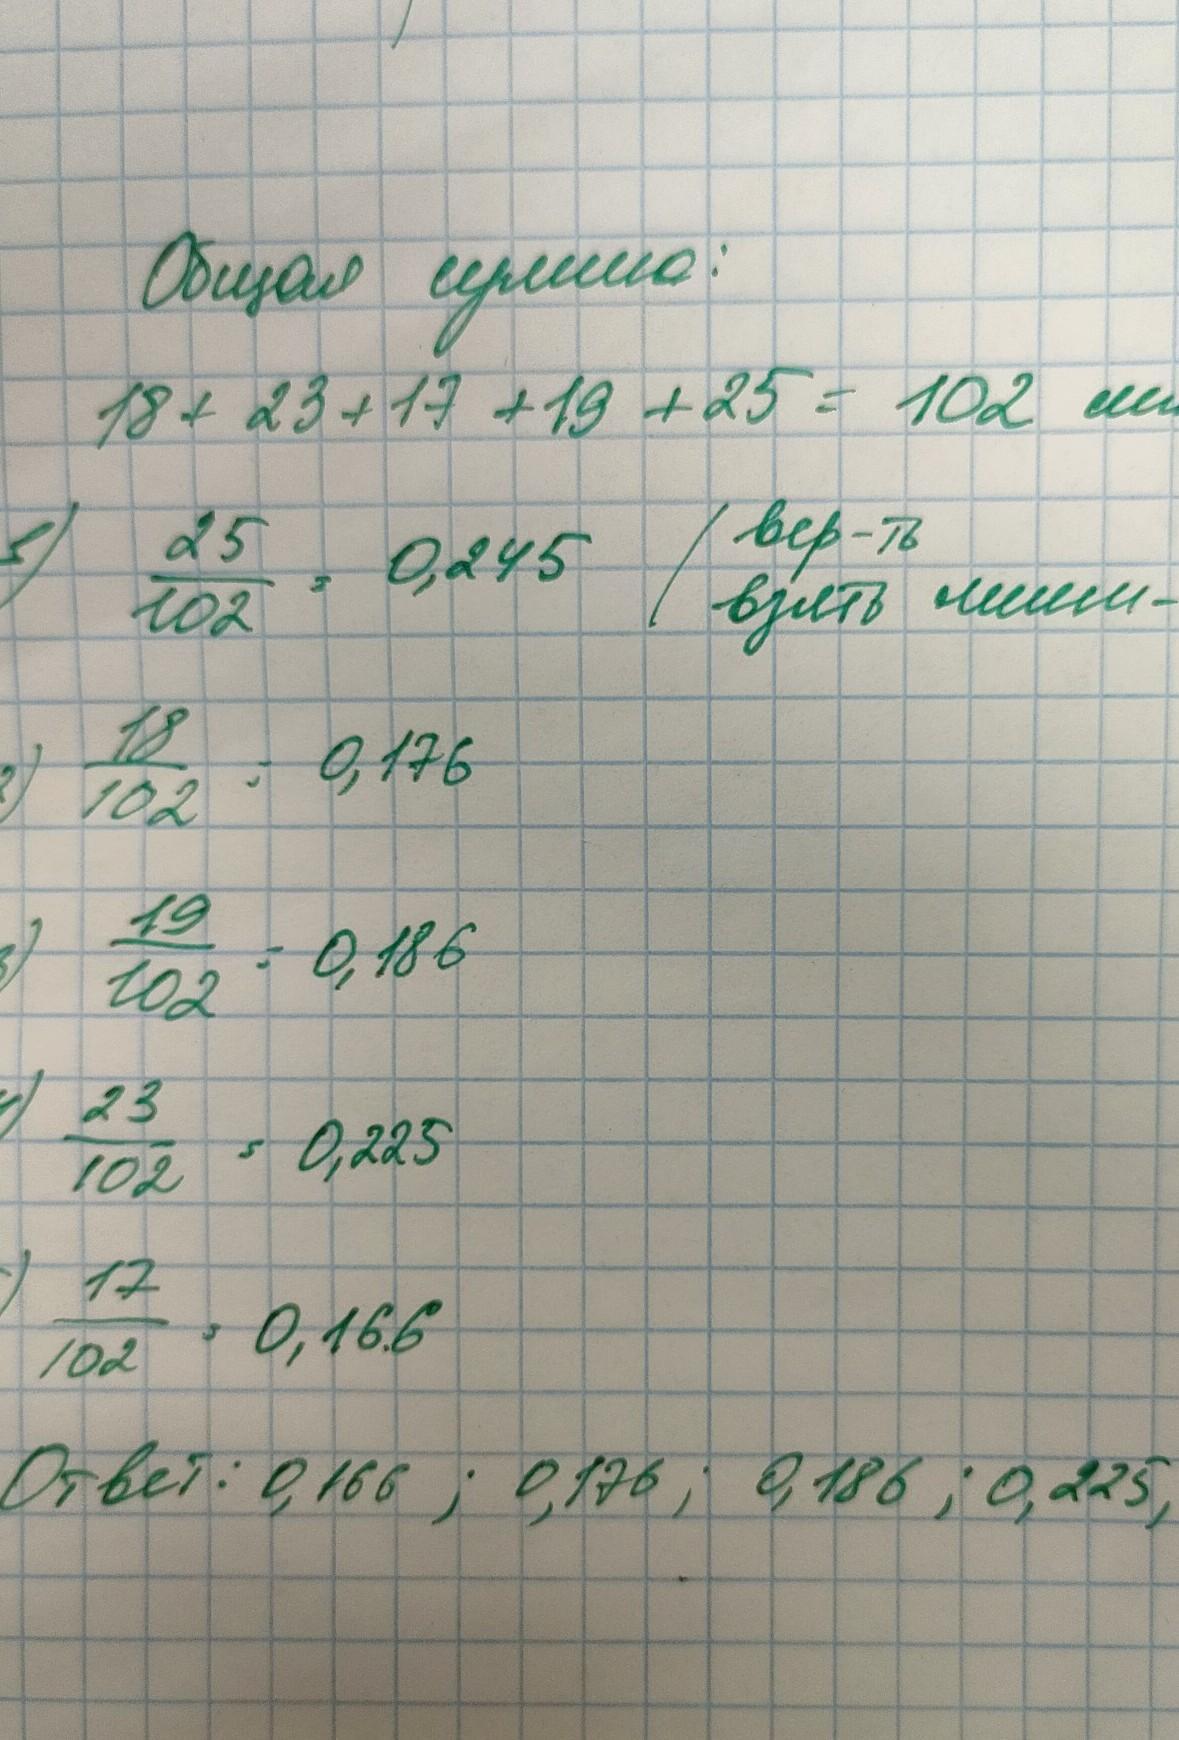 Общая сумма:
18 + 23 + 17 + 19 + 25 = 102
25/102 = 0,245 (вер-ть
взять
2) 18/102 = 0,176
3) 19/102 = 0,186
4) 23/102 = 0,225
17/102 = 0,166
Ответ: 0,166 ; 0,176 ; 0,186 ; 0,225,